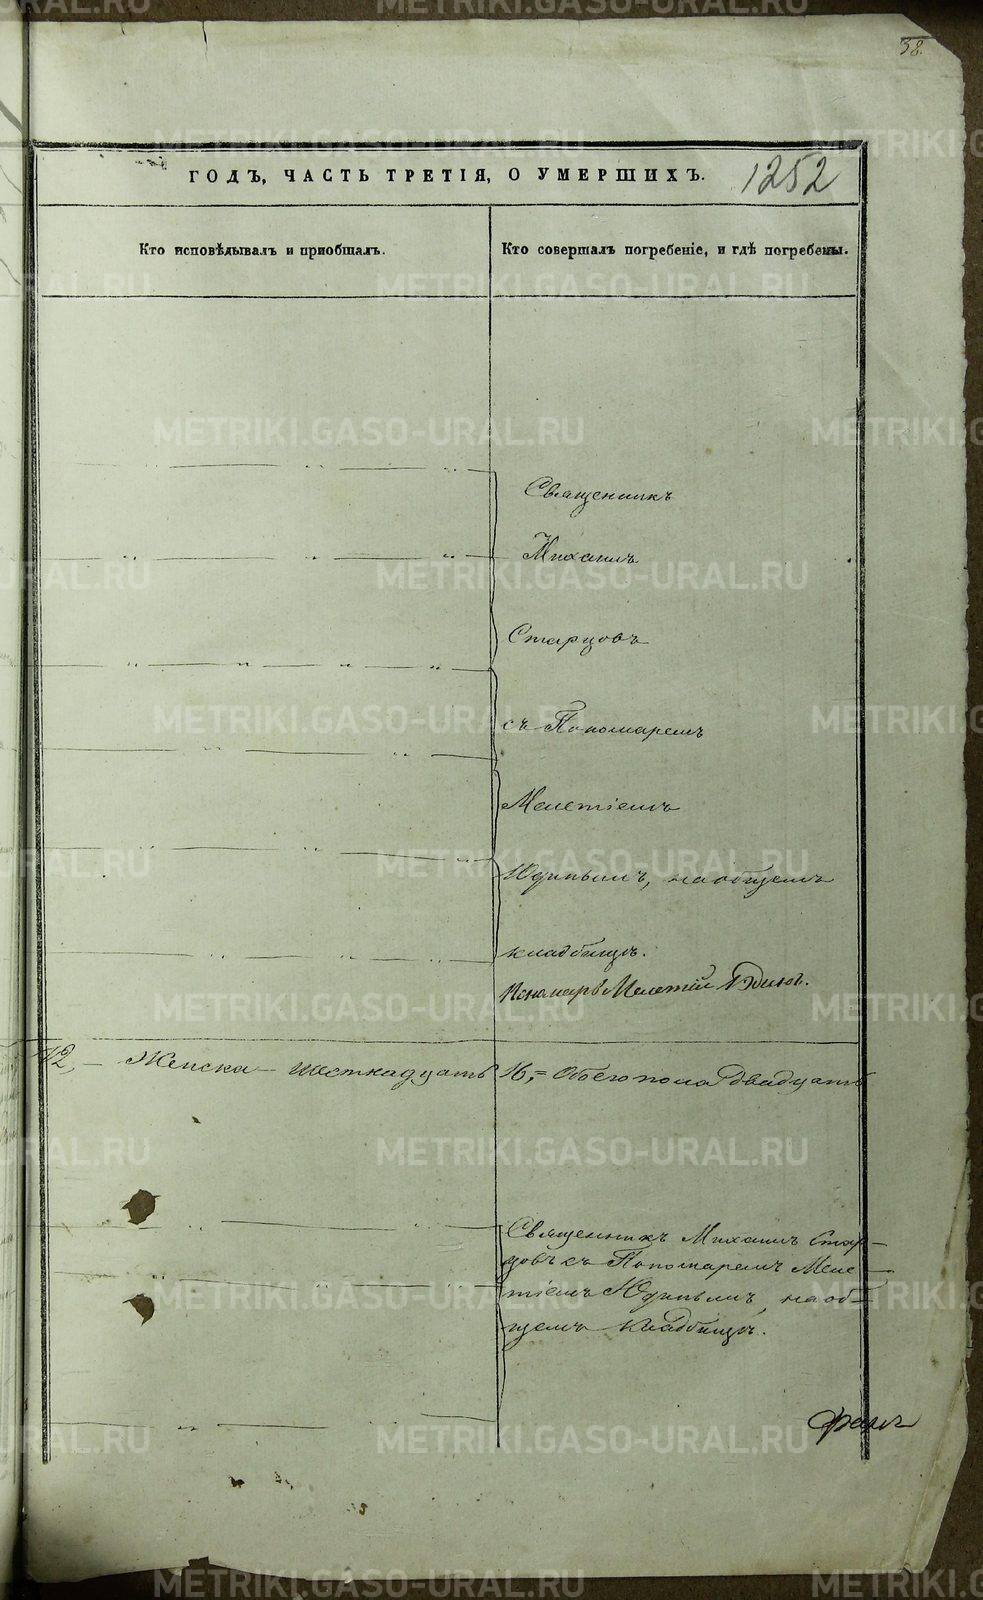 38.
ГОДЪ, ЧАСТЬ ТРЕТІЯ, О УМЕРШИХЪ.
1252
Кто исповѣдывалъ и пріобщалъ.
Кто совершалъ погребеніе, и гдѣ погребены.
Священникъ
Михаилъ
Старцовъ
съ Пономаремъ
Мелетіемъ
Юдинымъ, на общемъ
кладбищѣ.
Пономарь Мелетій Юдинъ.
12, — Женска — шестнадцать 16, = Обоего пола двадцать
Священникъ Михаилъ Стар-
цовъ съ Пономаремъ Меле-
тіемъ Юдинымъ, на об-
щемъ кладбищѣ.
METRIKI.GASO-URAL.RU